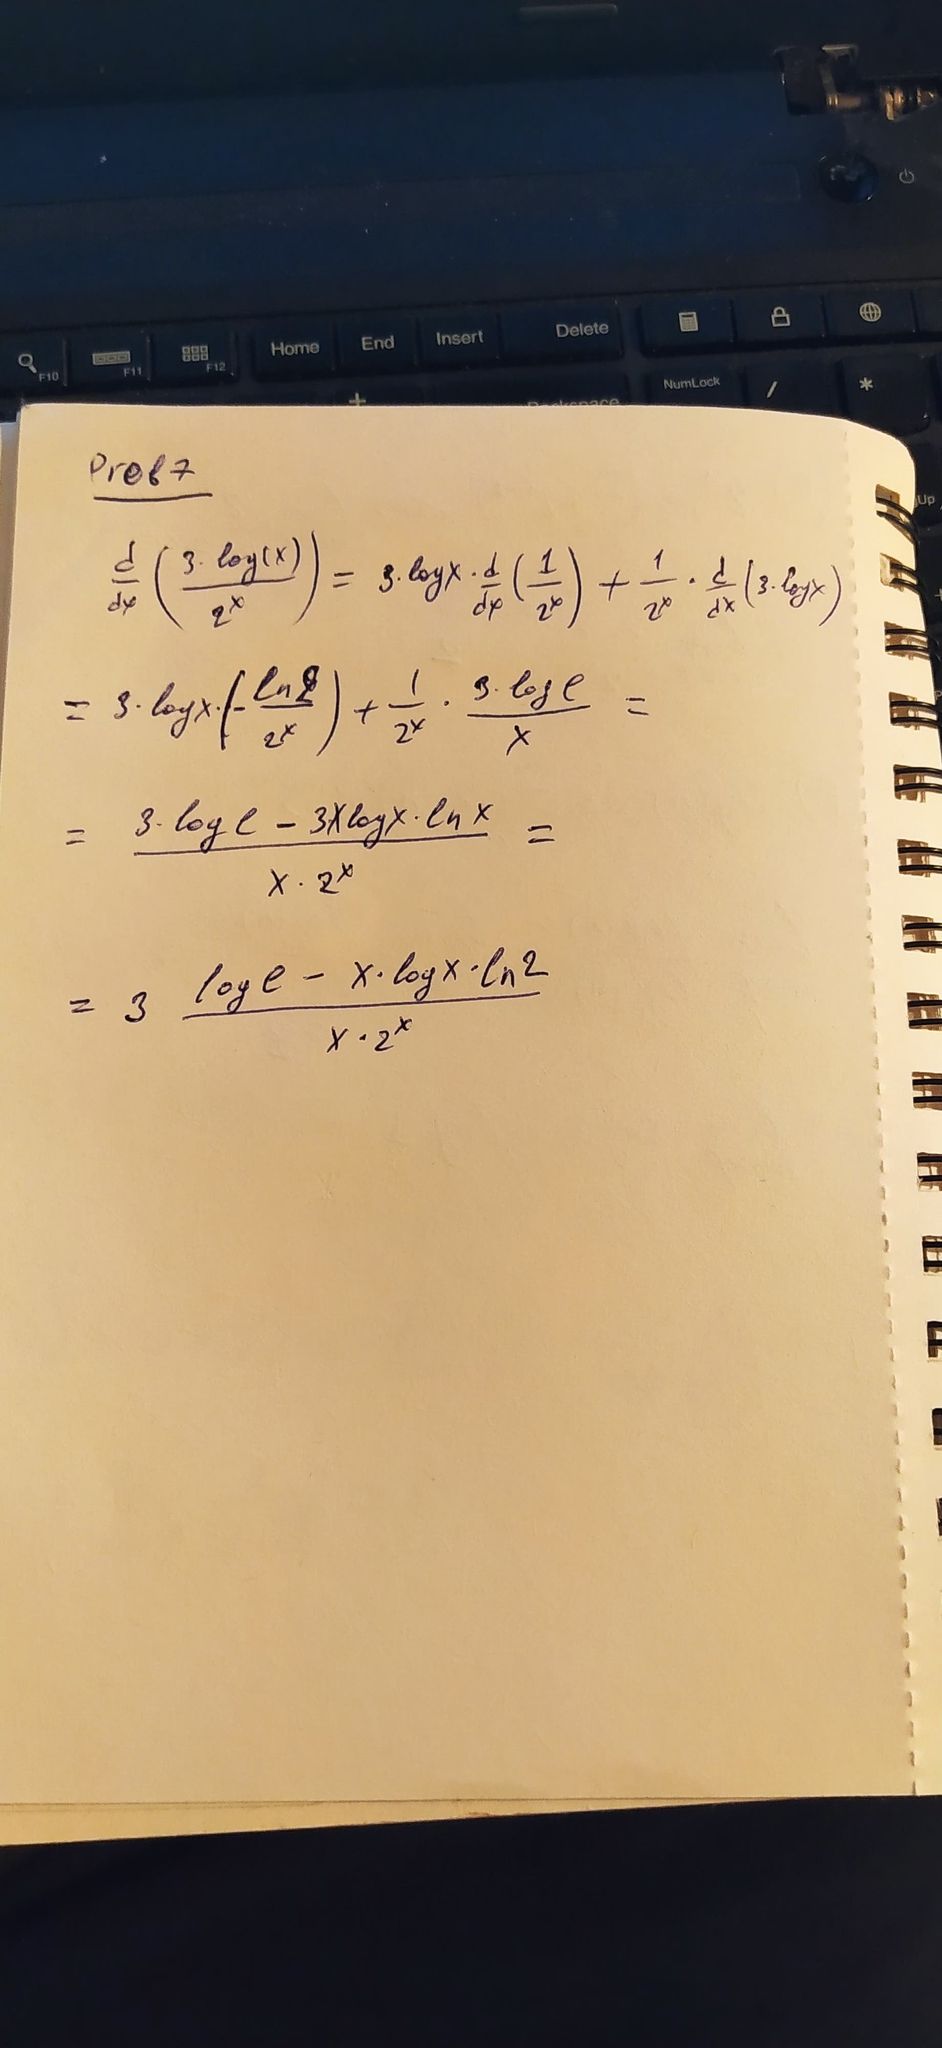 F10 F11 F12 Home End Insert Delete
NumLock / *
Backspace
Up
Prob 7
d/dx (3·log(x)/2^x) = 3·logx · d/dx (1/2^x) + 1/2^x · d/dx (3·logx)
= 3·logx·(-ln2/2^x) + 1/2^x · 3·loge/x =
= 3·loge - 3xlogx·ln x/x·2^x =
= 3 loge - x·logx·ln2/x·2^x